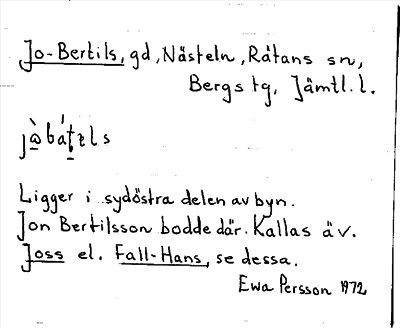 Jo-Bertils, gd, Nästeln, Råtans sn,
Bergs tg, Jämtl. l.
Ligger i sydöstra delen av byn.
Jon Bertilsson bodde där. Kallas äv.
Joss el. Fall-Hans, se dessa.
Ewa Persson 1972